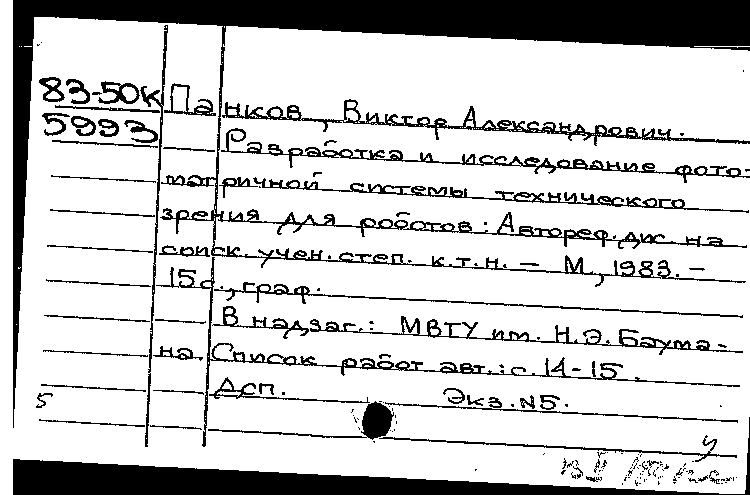 83-50к Панков, Виктор Александрович.
5993 Разработка и исследование фото-
матричной системы технического
зрения для роботов: Автореф. дис на
соиск. учен. степ. к.т.н. — М., 1983. —
15 с., граф.
В надзаг.: МВТУ им. Н.Э. Баума-
на. Список работ авт.: с. 14-15.
Дсп. Экз. N5.
5
у